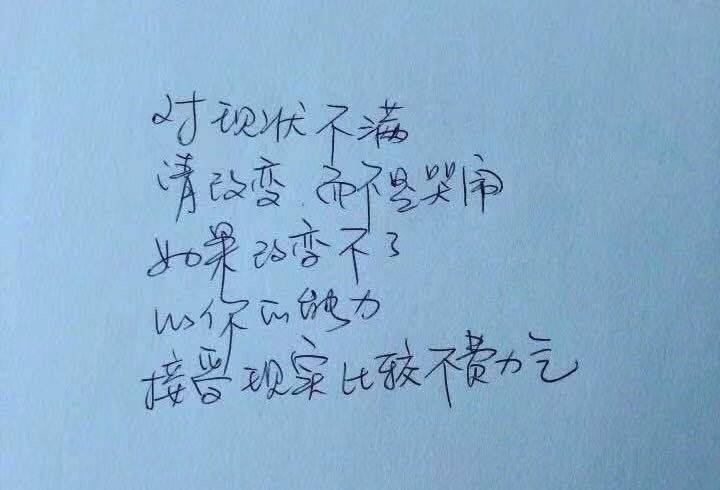 对现状不满
请改变.而不是哭闹
如果改变不了
以你的能力
接受现实比较不费力气